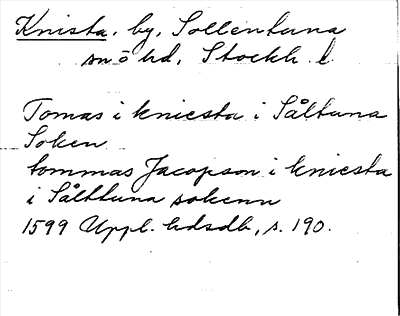 Knista, by, Sollentuna
sn o hd, Stockh. l
Tomas i kniesta i Såltuna
Soken
tommas Jacopson i kniesta
i Sålttuna sokenn
1599 Uppl. hdsdb, s. 190.